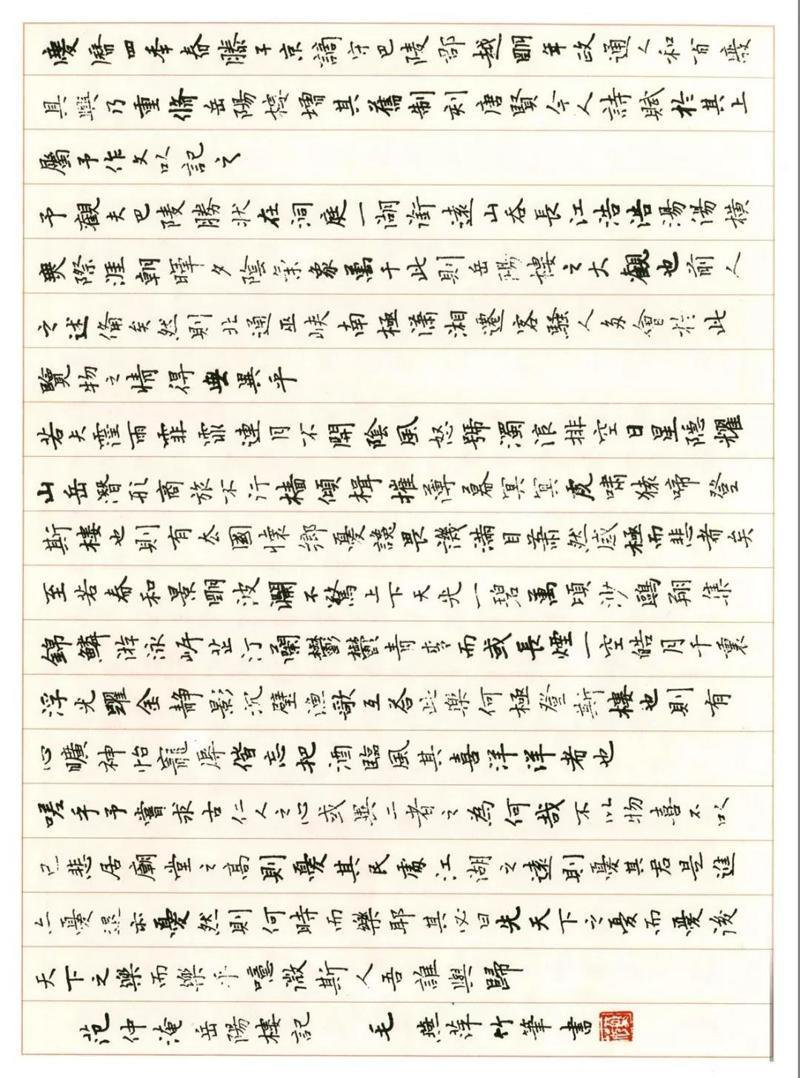 慶曆四年春滕子京謫守巴陵郡越明年政通人和百廢
具興乃重脩岳陽樓增其舊制刻唐賢今人詩賦於其上
屬予作文以記之
予觀夫巴陵勝狀在洞庭一湖銜遠山吞長江浩浩湯湯橫
無際涯朝暉夕陰氣象萬千此則岳陽樓之大觀也前人
之述備矣然則北通巫峽南極瀟湘遷客騷人多會於此
覽物之情得無異乎
若夫霪雨霏霏連月不開陰風怒號濁浪排空日星隱耀
山岳潛形商旅不行檣傾楫摧薄暮冥冥虎嘯猿啼登
斯樓也則有去國懷鄉憂讒畏譏滿目蕭然感極而悲者矣
至若春和景明波瀾不驚上下天光一碧萬頃沙鷗翔集
錦鱗游泳岸芷汀蘭鬱鬱青青而或長煙一空皓月千里
浮光躍金靜影沉璧漁歌互答此樂何極登斯樓也則有
心曠神怡寵辱偕忘把酒臨風其喜洋洋者也
嗟乎予嘗求古仁人之心或異二者之為何哉不以物喜不以
己悲居廟堂之高則憂其民處江湖之遠則憂其君是進
亦憂退亦憂然則何時而樂耶其必曰先天下之憂而憂後
天下之樂而樂乎噫微斯人吾誰與歸
范仲淹岳陽樓記 毛燕萍竹筆書